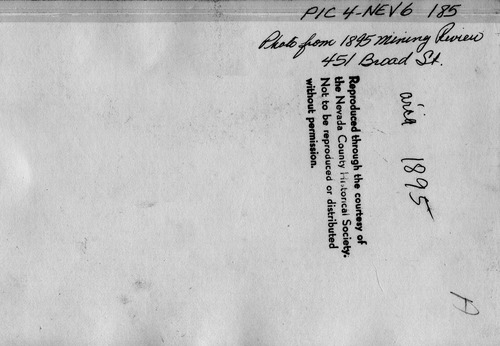 PIC 4-NEV6 185
Photo from 1895 Mining Review
451 Broad St.
Reproduced through the courtesy of
the Nevada County Historical Society.
Not to be reproduced or distributed
without permission.
circa 1895